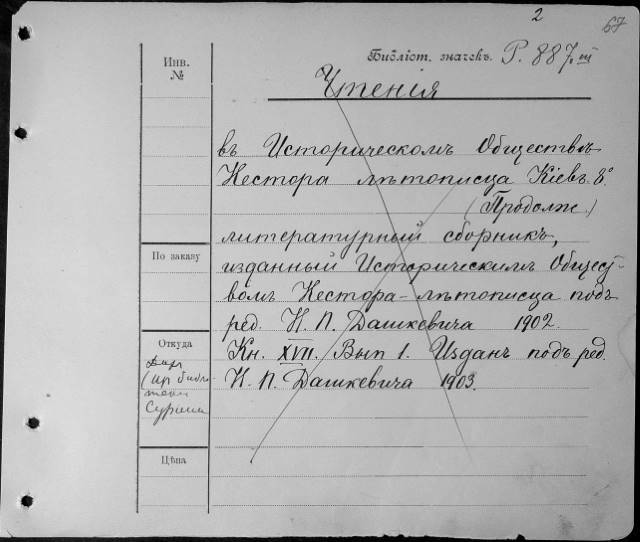 2
67
Инв. №
Библіот. значекъ. Р. 887. III
Чтенія
въ Историческомъ Обществѣ
Нестора лѣтописца Кіевъ. 8°
(Продолж.)
литературный сборникъ,
изданный Историческимъ Общест-
вомъ Нестора-лѣтописца подъ
ред. Н. П. Дашкевича 1902.
Кн. XVII. Вып 1. Изданъ подъ ред.
Н. П. Дашкевича 1903.
По заказу
Откуда
Дар
(из библио-
теки
Цѣна